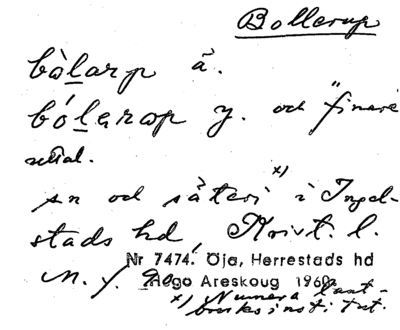 Bollerup
bòlarp ä.
bólarop y. och "finare
uttal.
sn och säteri x) i Ingel-
stads hd, Krist. l.
Nr 7474. Öja, Herrestads hd
M. f. 90. Hugo Areskoug 1960.
x) Numera lant-
bruksinstitut.